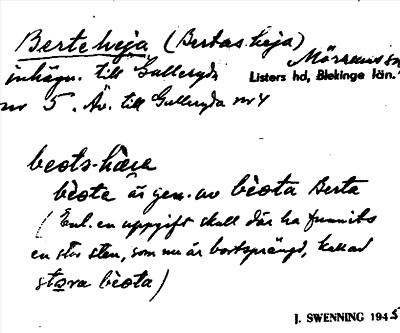 Berteheja (Bertas heja)
Mörrums sn
inhägn. till Gulleryda Listers hd, Blekinge län.
nr 5. Äv. till Gulleryda nr 4
bèots-hæia
bèota är gen. av bèota Berta
(Enl. en uppgift skall där ha funnits
en stor sten, som nu är bortsprängd, kallad
stora bèota)
J. SWENNING 1945